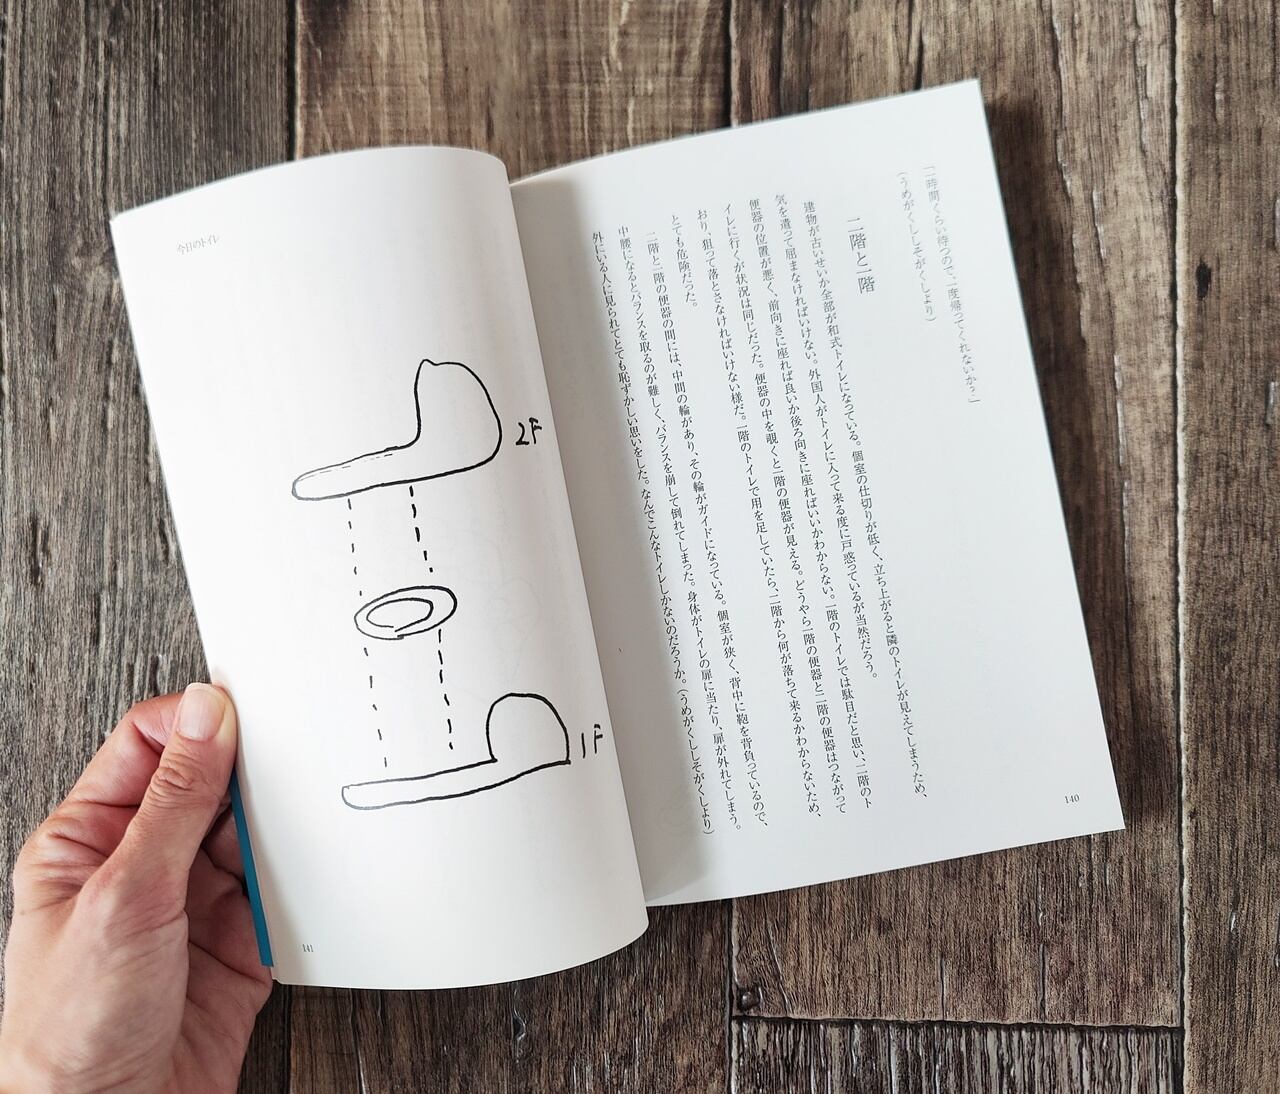 「二時間くらい待つので、一度帰ってくれないか？」
（うめがくししそがくしより）
二階と一階
建物が古いせいか全部が和式トイレになっている。個室の仕切りが低く、立ち上がると隣のトイレが見えてしまうため、
気を遣って屈まなければいけない。外国人がトイレに入って来る度に戸惑っているが当然だろう。
便器の位置が悪く、前向きに座れば良いか後ろ向きに座ればいいかわからない。一階のトイレでは駄目だと思い、二階のト
イレに行くが状況は同じだった。便器の中を覗くと一階の便器が見える。どうやら一階の便器と二階の便器はつながって
おり、狙って落とさなければいけない様だ。一階のトイレで用を足していたら、二階から何が落ちて来るかわからないため、
とても危険だった。
二階と一階の便器の間には、中間の輪があり、その輪がガイドになっている。個室が狭く、背中に鞄を背負っているので、
中腰になるとバランスを取るのが難しく、バランスを崩して倒れてしまった。身体がトイレの扉に当たり、扉が外れてしまう。
外にいる人に見られてとても恥ずかしい思いをした。なんでこんなトイレしかないのだろうか。（うめがくししそがくしより）
140
今日のトイレ
2F
1F
141